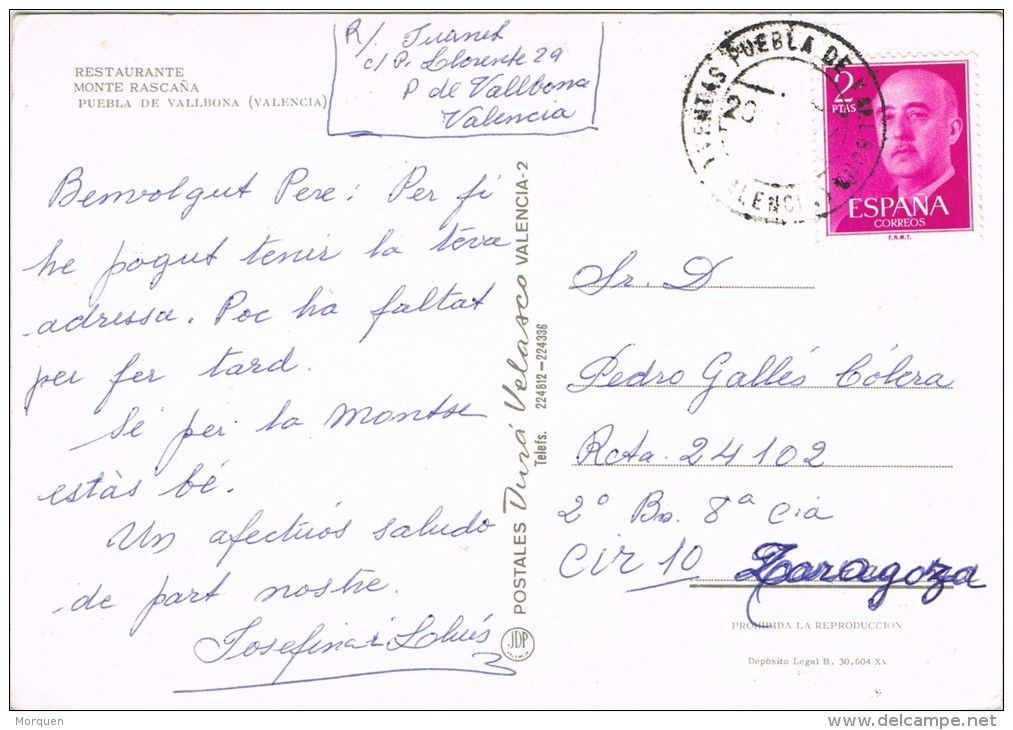 RESTAURANTE
MONTE RASCAÑA
PUEBLA DE VALLBONA (VALENCIA)
R/. Juanet
c/ P. Llorente 29
P de Vallbona
Valencia
Benvolgut Pere: Per fi
he pogut tenir la teva
adressa. Poc ha faltat
per fer tard.
Sé per la Montse
estàs bé.
Un afectuós saludo
de part nostre.
Josefina i Lluís
POSTALES Durá Velasco VALENCIA-2
Telefs. 224812-224336
JDP
VALENCIA
PUEBLA DE
20
2
PTAS
ESPAÑA
CORREOS
F.N.M.T.
Sr. D
Pedro Gallés Cólera
Rcta. 24102
2º Bn. 8ª Cia
Cir 10 Zaragoza
PROHIBIDA LA REPRODUCCION
Depósito Legal B. 30.604 XV
Morquen
delcampe.net